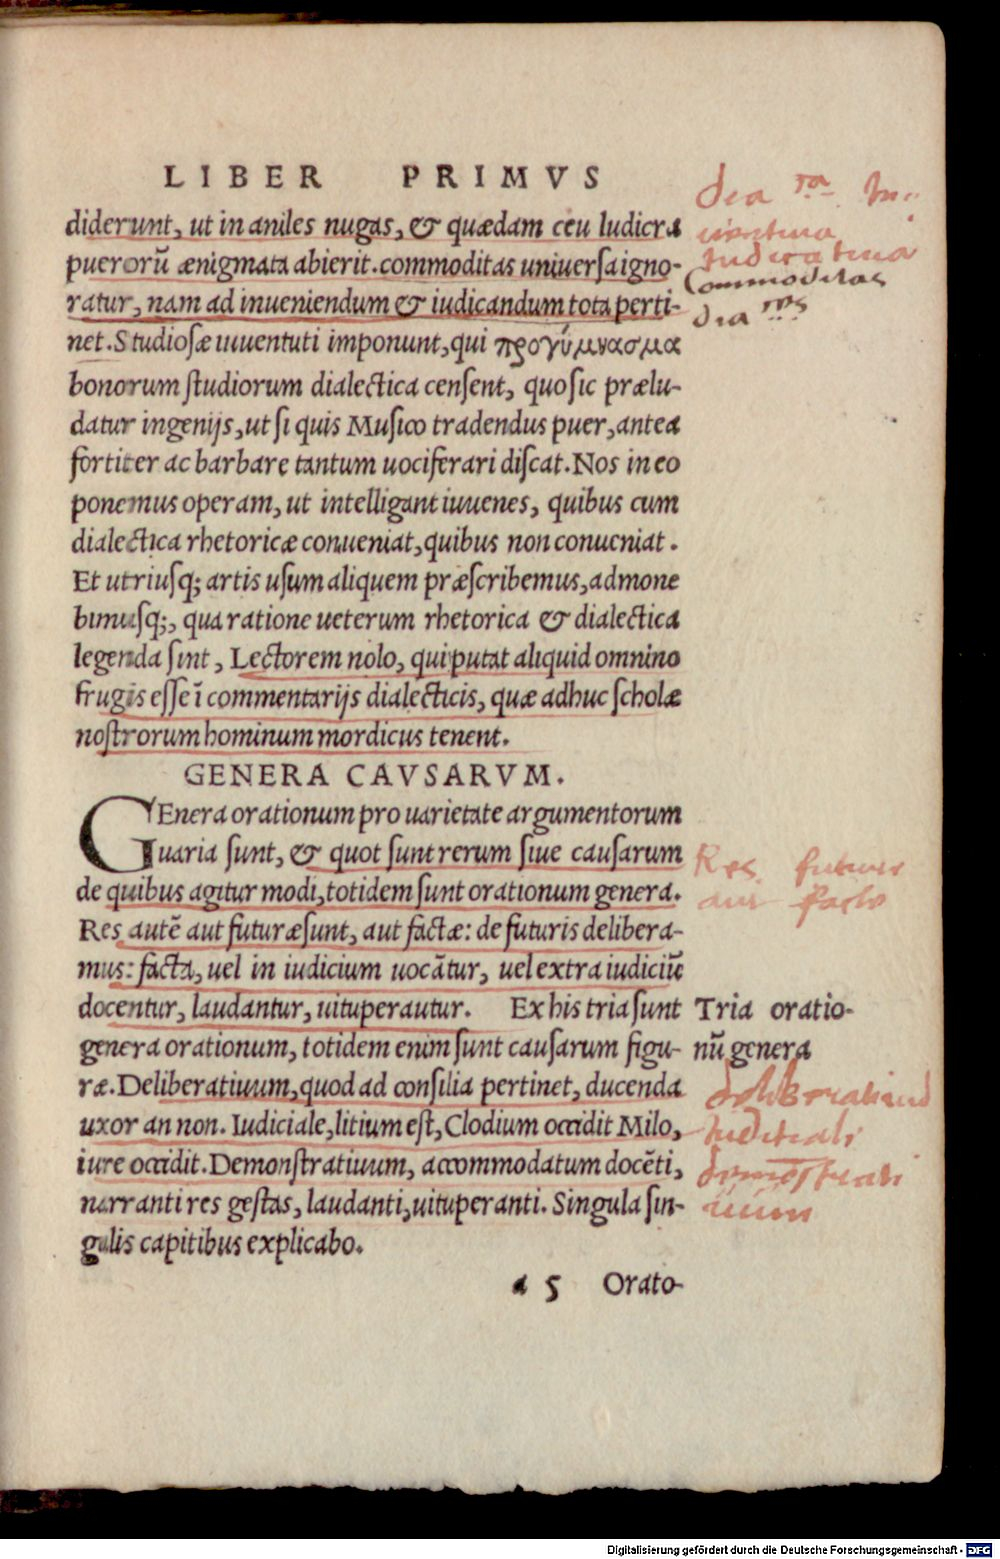 LIBER PRIMVS
diderunt, ut in aniles nugas, & quædam ceu ludicra
puerorū ænigmata abierit. commoditas uniuersa igno-
ratur, nam ad inueniendum & iudicandum tota perti-
net. Studiosæ iuuentuti imponunt, qui προγύμνασμα
bonorum studiorum dialectica censent, quo sic prælu-
datur ingenijs, ut si quis Musico tradendus puer, antea
fortiter ac barbare tantum uociferari discat. Nos in eo
ponemus operam, ut intelligant iuuenes, quibus cum
dialectica rhetoricæ conueniat, quibus non conueniat.
Et utriusq; artis usum aliquem præscribemus, admone
bimusq;, qua ratione ueterum rhetorica & dialectica
legenda sint, Lectorem nolo, qui putat aliquid omnino
frugis esse ī commentarijs dialecticis, quæ adhuc scholæ
nostrorum hominum mordicus tenent.
GENERA CAVSARVM.
GEnera orationum pro uarietate argumentorum
uaria sunt, & quot sunt rerum siue causarum
de quibus agitur modi, totidem sunt orationum genera.
Res autē aut futuræ sunt, aut factæ: de futuris delibera-
mus: facta, uel in iudicium uocātur, uel extra iudiciū
docentur, laudantur, uituperautur. Ex his tria sunt
genera orationum, totidem enim sunt causarum figu-
ræ. Deliberatiuum, quod ad consilia pertinet, ducenda
uxor an non. Iudiciale, litium est, Clodium occidit Milo,
iure occidit. Demonstratiuum, accommodatum docēti,
narranti res gestas, laudanti, uituperanti. Singula sin-
gulis capitibus explicabo.
a 5 Orato-
Commoditas
Res
aut
Tria oratio-
nū genera
deliberatiuū